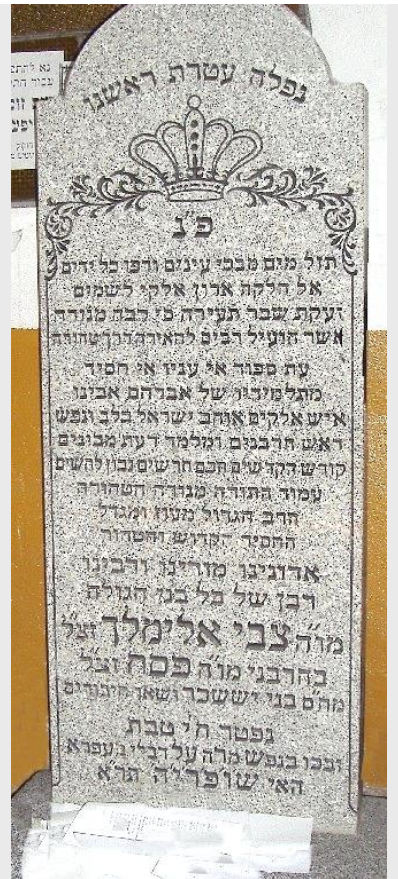 נפלה עטרת ראשנו
פ״נ
תזל מים מבכי עינים ורפו כל ידים
אל הלקח ארון אלקי לשמים
זעקת שבר תעירה כי כבה מנורה
אשר הועיל רבים להאירה דרך טהורה
עת ספוד אי עניו אי חסיד
מתלמידיו של אברהם אבינו
איש אלקים אוהב ישראל בלב ונפש
ראש הרבנים ומלמד דעת מבונים
קודש הקדשים חכם חרשים נבון לחשים
עמוד התורה מנורה הטהורה
הרב הגדול מעוז ומגדל
החסיד הקדוש והטהור
אדונינו מורינו ורבינו
רבן של כל בני הגולה
מו״ה צבי אלימלך זצ״ל
בהרבני מו״ה פסח זצ״ל
מח״ס בני יששכר ושאר חיבורים
נפטר ח״י טבת
ובכו בנפש מרה על דביי בעפרא
האי שופריה תר״א
גא להתפ